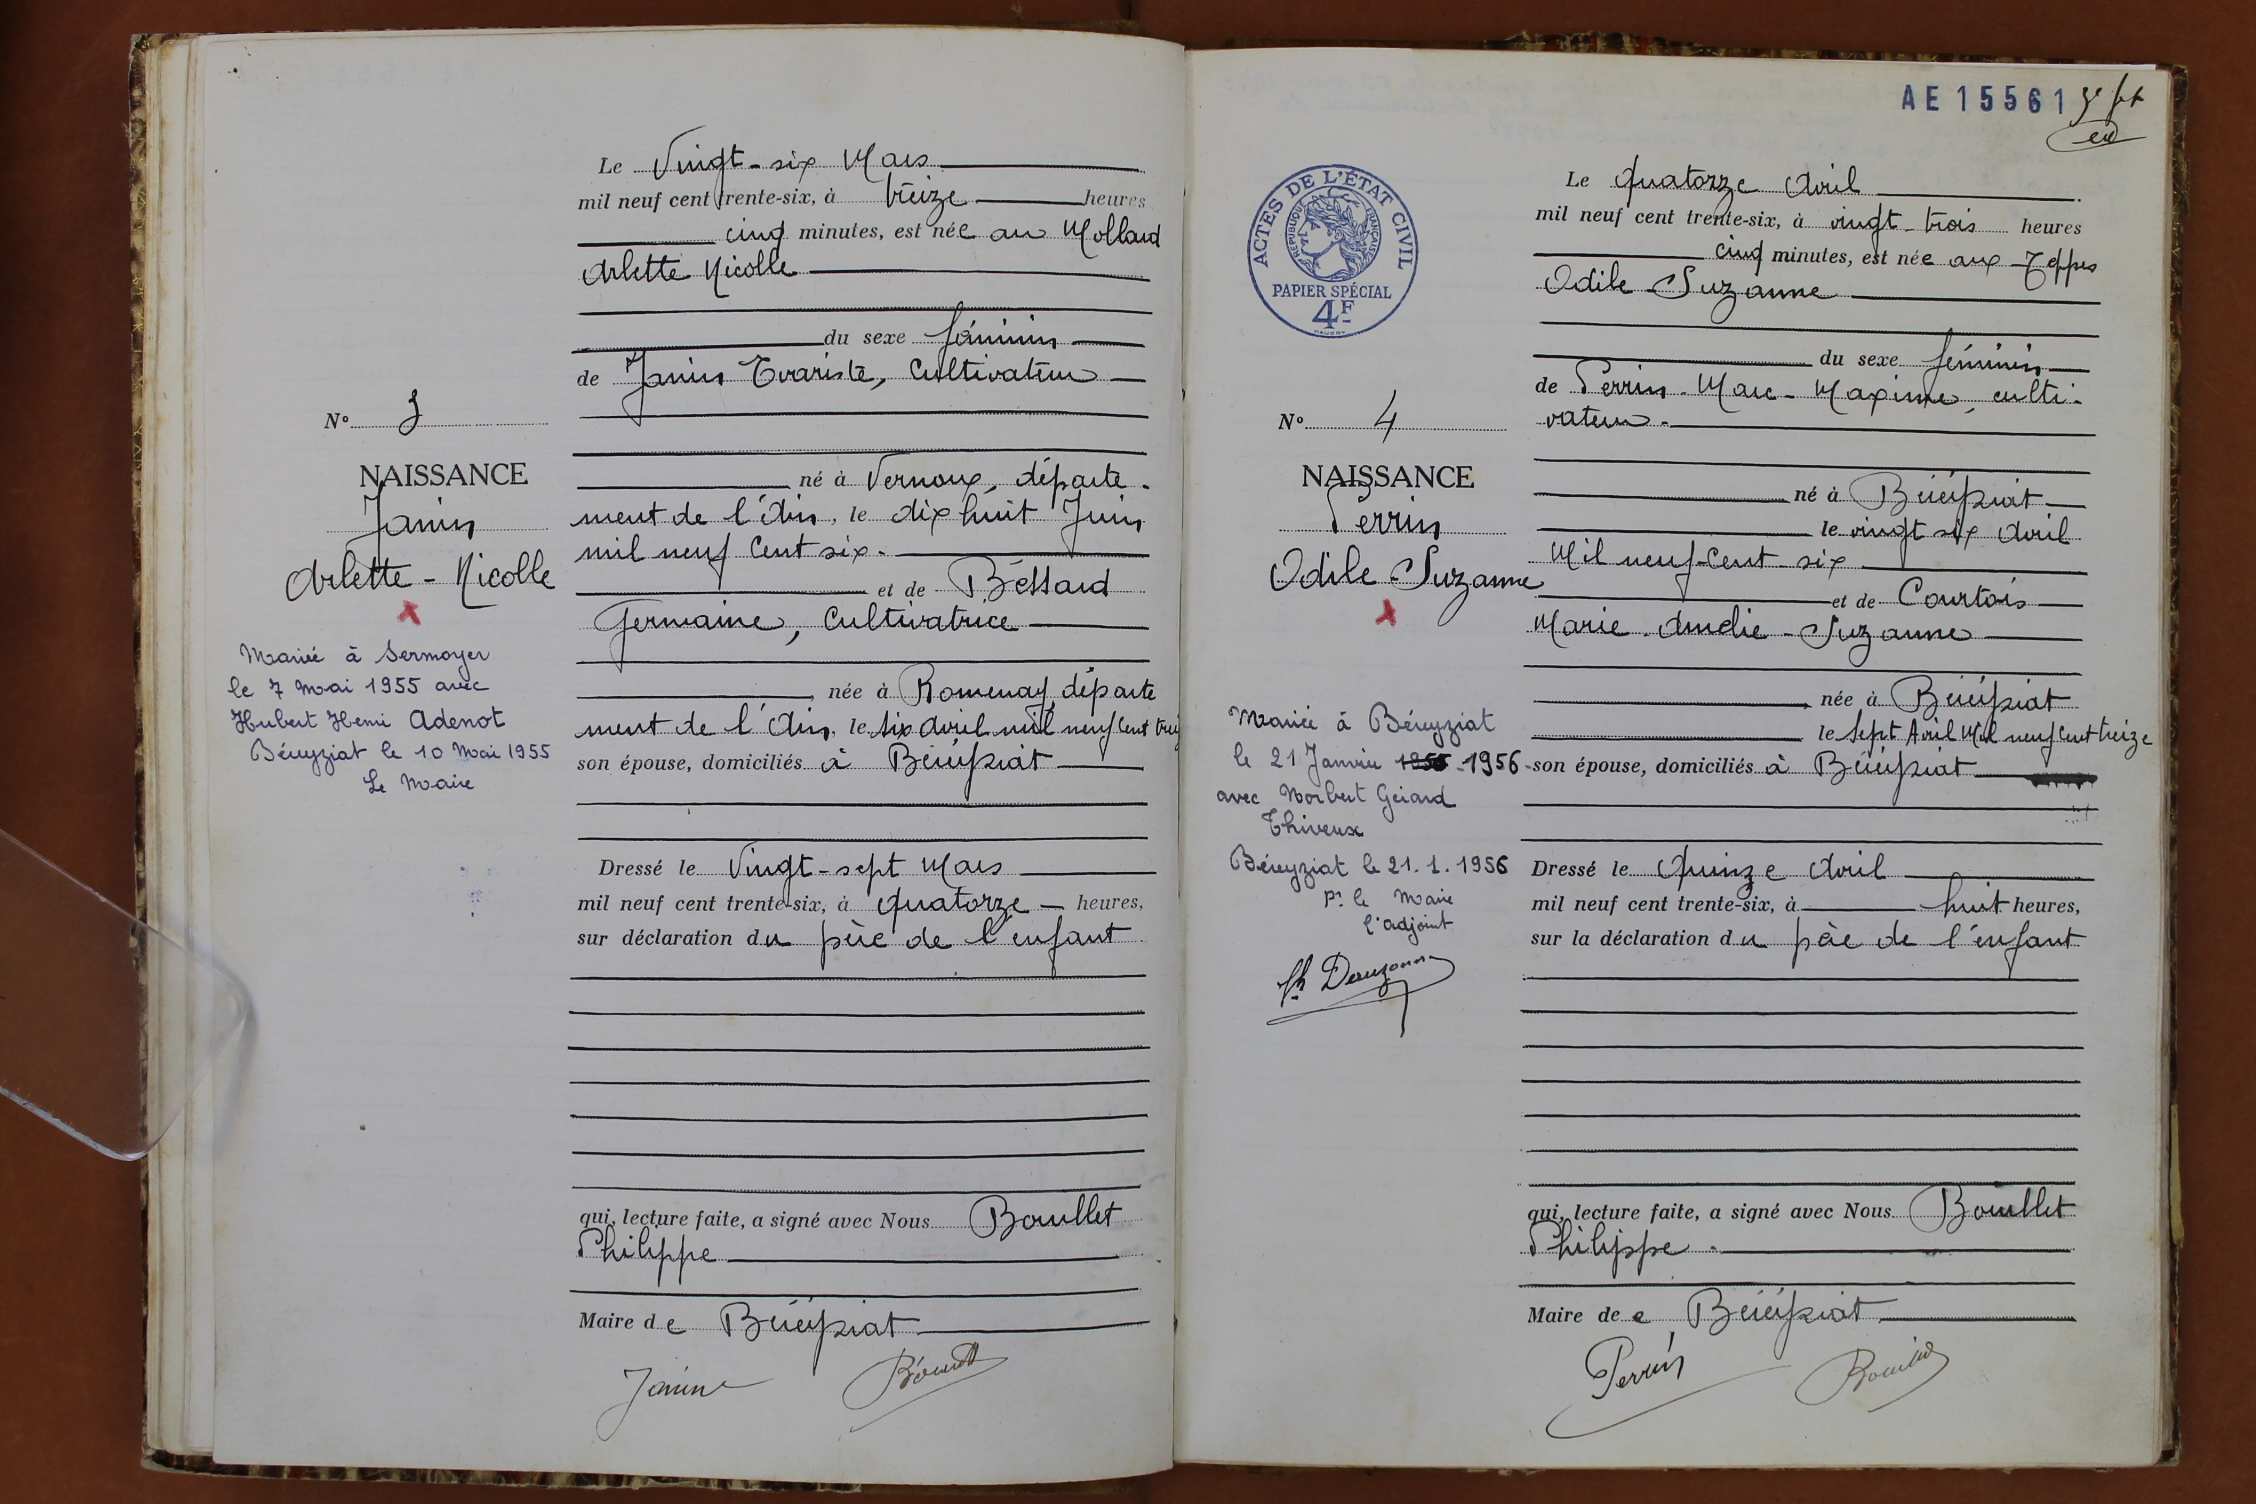 Le Vingt-six Mars
mil neuf cent trente-six, à treize heures
cinq minutes, est née au Mollard
Arlette Nicolle
du sexe féminin
de Janin Evariste, Cultivateur
N° 3
NAISSANCE
Janin
Arlette - Nicolle
né à Vernoux, départe-
ment de l'Ain, le dix huit Juin
mil neuf Cent six.
et de Béssard
Germaine, Cultivatrice
née à Romenay, départe
ment de l'Ain, le six avril mil neuf Cent
son épouse, domiciliés à Béréÿziat
Mariée à Sermoyer
le 7 Mai 1955 avec
Hubert Henri Adenot
Béreyziat le 10 Mai 1955
Le Maire
Dressé le Vingt-sept Mars
mil neuf cent trente-six, à quatorze heures,
sur déclaration du père de l'enfant
qui, lecture faite, a signé avec Nous Bouillet
Philippe
Maire de Béréÿziat
Janin
AE 15561
ACTES DE L'ÉTAT CIVIL
RÉPUBLIQUE FRANÇAISE
PAPIER SPÉCIAL
4F
Le Quatorze Avril
mil neuf cent trente-six, à vingt-trois heures
cinq minutes, est née aux Teppes
Odile Suzanne
du sexe féminin
de Perrin-Marc-Maxime, culti-
vateur.
N° 4
NAISSANCE
Perrin
Odile-Suzanne
né à Béréÿziat
le vingt six Avril
Mil neuf-Cent-six
et de Courtois
Marie-Amélie-Suzanne
née à Béréÿziat
le Sept Avril Mil neuf cent treize
son épouse, domiciliés à Béréÿziat
Mariée à Béreyziat
le 21 Janvier 1955 - 1956 -
avec Norbert Gérard
Thiveux
Béreyziat le 21.1.1956
Pr le Maire
l'adjoint
Dressé le Quinze Avril
mil neuf cent trente-six, à huit heures,
sur la déclaration du père de l'enfant
qui, lecture faite, a signé avec Nous Bouillet
Philippe.
Maire de e Béréÿziat
Perrin